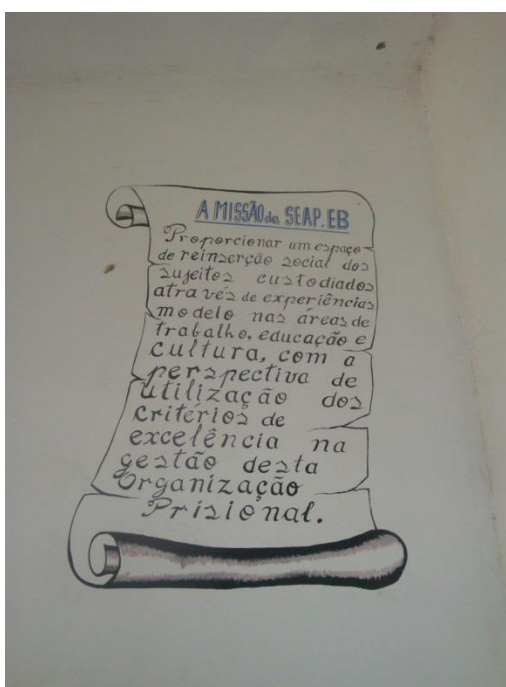 A MISSÃO da SEAP.EB
Proporcionar um espaço
de reinserção social dos
sujeitos custodiados
através de experiências
modelo nas áreas de
trabalho, educação e
cultura, com a
perspectiva de
utilização dos
critérios de
excelência na
gestão desta
Organização
Prisional.